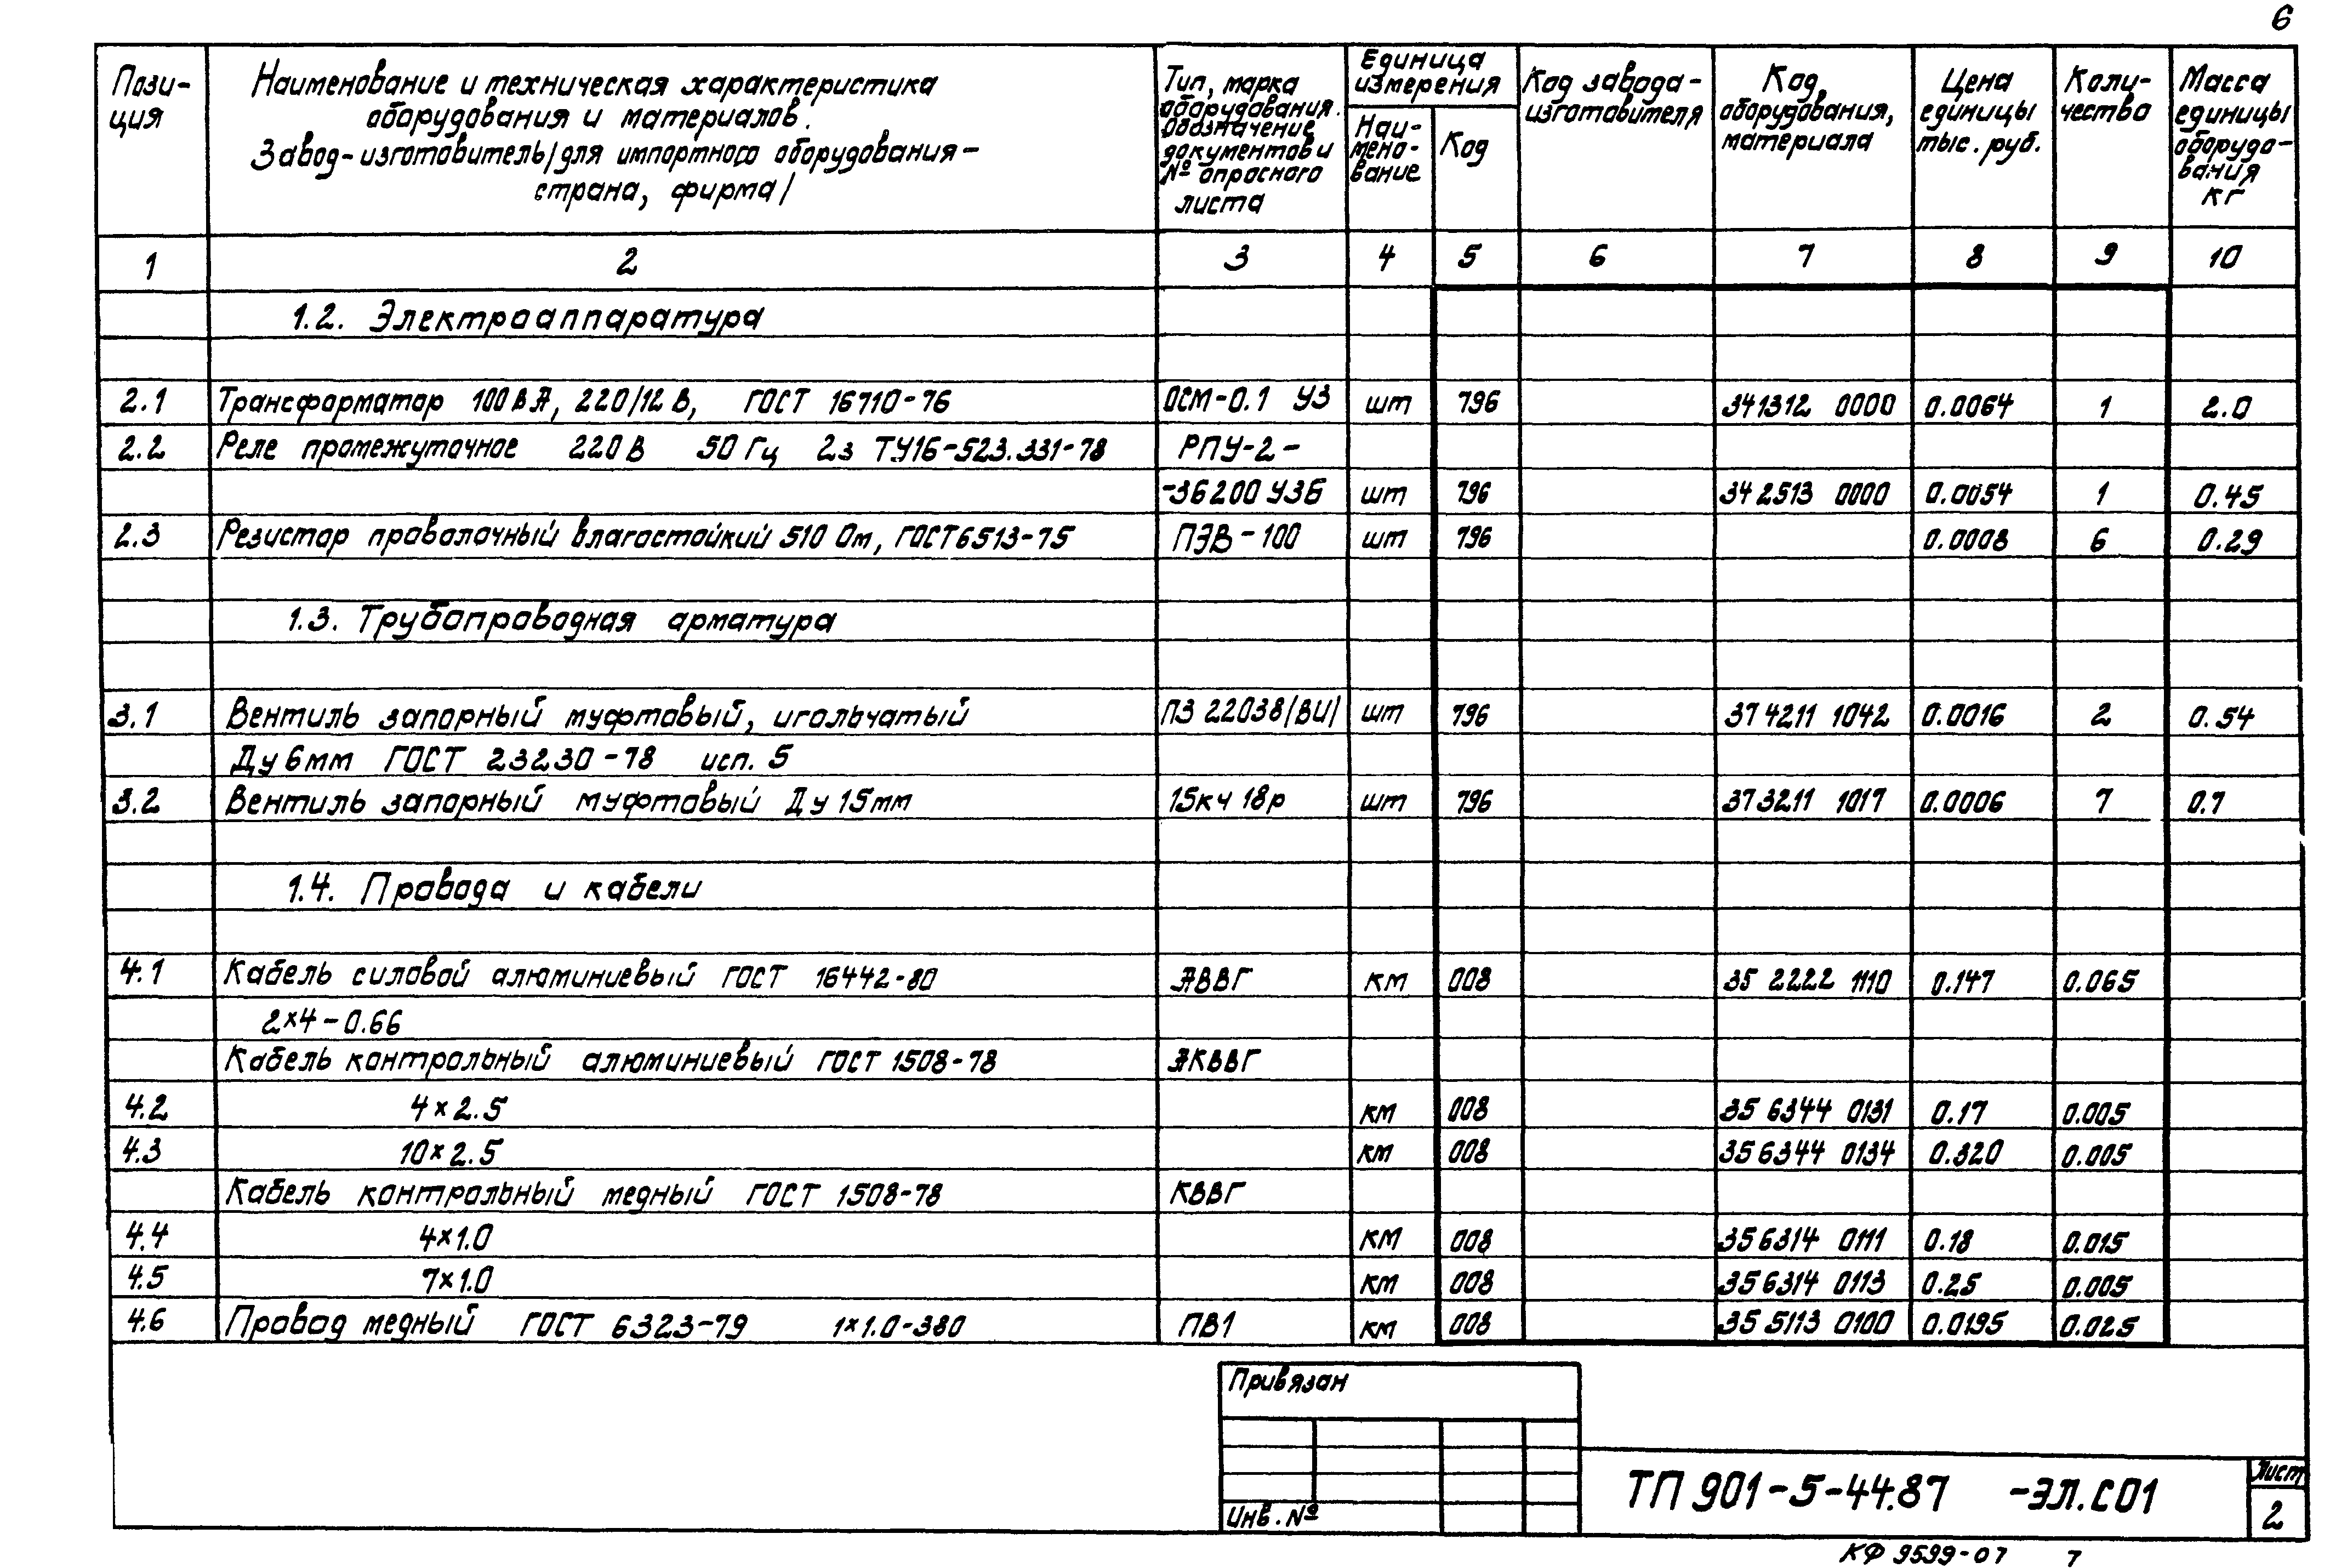 6
Пози-
ция
Наименование и техническая характеристика
оборудования и материалов.
Завод-изготовитель/для импортного оборудования-
страна, фирма/
Тип, марка
оборудования.
Обозначение
документов и
№ опросного
листа
Единица
измерения
Наи-
мено-
вание
Код
Код завода-
изготовителя
Код
оборудования,
материала
Цена
единицы
тыс. руб.
Коли-
чество
Масса
единицы
оборудо-
вания
кг
1 2 3 4 5 6 7 8 9 10
1.2. Электроаппаратура
2.1 Трансформатор 100ВА, 220/12 В, ГОСТ 16710-76 ОСМ-0.1 У3 шт 796 341312 0000 0.0064 1 2.0
2.2 Реле промежуточное 220В 50 Гц 2з ТУ16-523.331-78 РПУ-2-
-36200 У3Б шт 796 342513 0000 0.0054 1 0.45
2.3 Резистор проволочный влагостойкий 510 Ом, ГОСТ6513-75 ПЭВ-100 шт 796 0.0008 6 0.29
1.3. Трубопроводная арматура
3.1 Вентиль запорный муфтовый, игольчатый ПЗ 22038/ВИ/ шт 796 374211 1042 0.0016 2 0.54
Ду 6мм ГОСТ 23230-78 исп. 5
3.2 Вентиль запорный муфтовый Ду 15мм 15кч 18р шт 796 373211 1017 0.0006 7 0.7
1.4. Провода и кабели
4.1 Кабель силовой алюминиевый ГОСТ 16442-80 АВВГ км 008 35 2222 1110 0.147 0.065
2×4-0.66
Кабель контрольный алюминиевый ГОСТ 1508-78 АКВВГ
4.2 4×2.5 км 008 35 6344 0131 0.17 0.005
4.3 10×2.5 км 008 356344 0134 0.320 0.005
Кабель контрольный медный ГОСТ 1508-78 КВВГ
4.4 4×1.0 км 008 356314 0111 0.18 0.015
4.5 7×1.0 км 008 356314 0113 0.25 0.005
4.6 Провод медный ГОСТ 6323-79 1×1.0-380 ПВ1 км 008 355113 0100 0.0195 0.025
Привязан
Инв. №
ТП 901-5-44.87 -ЭЛ.СО1
Лист
2
КФ 9599-07 7